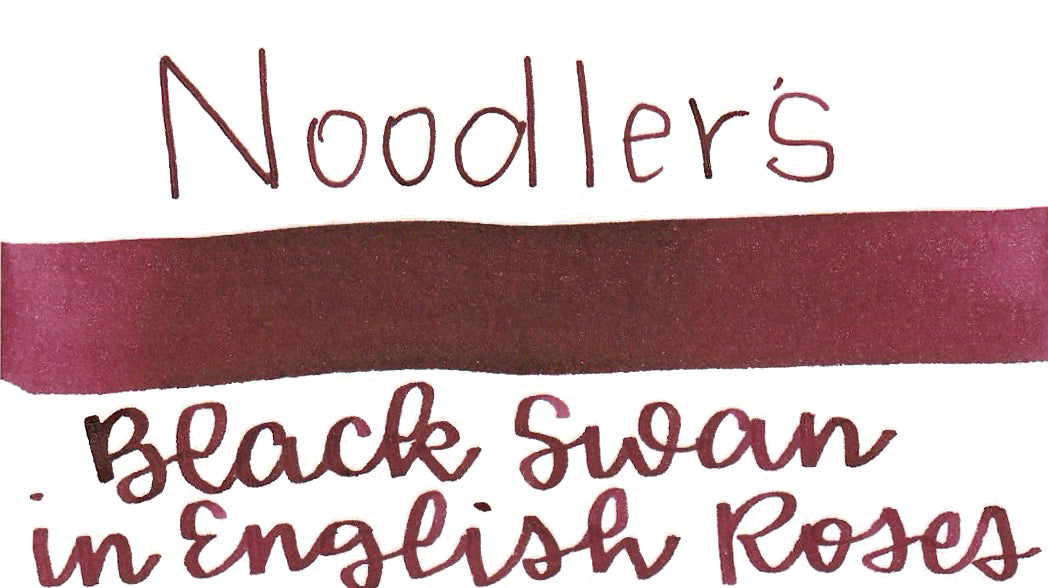 Noodler's
Black Swan
in English Roses